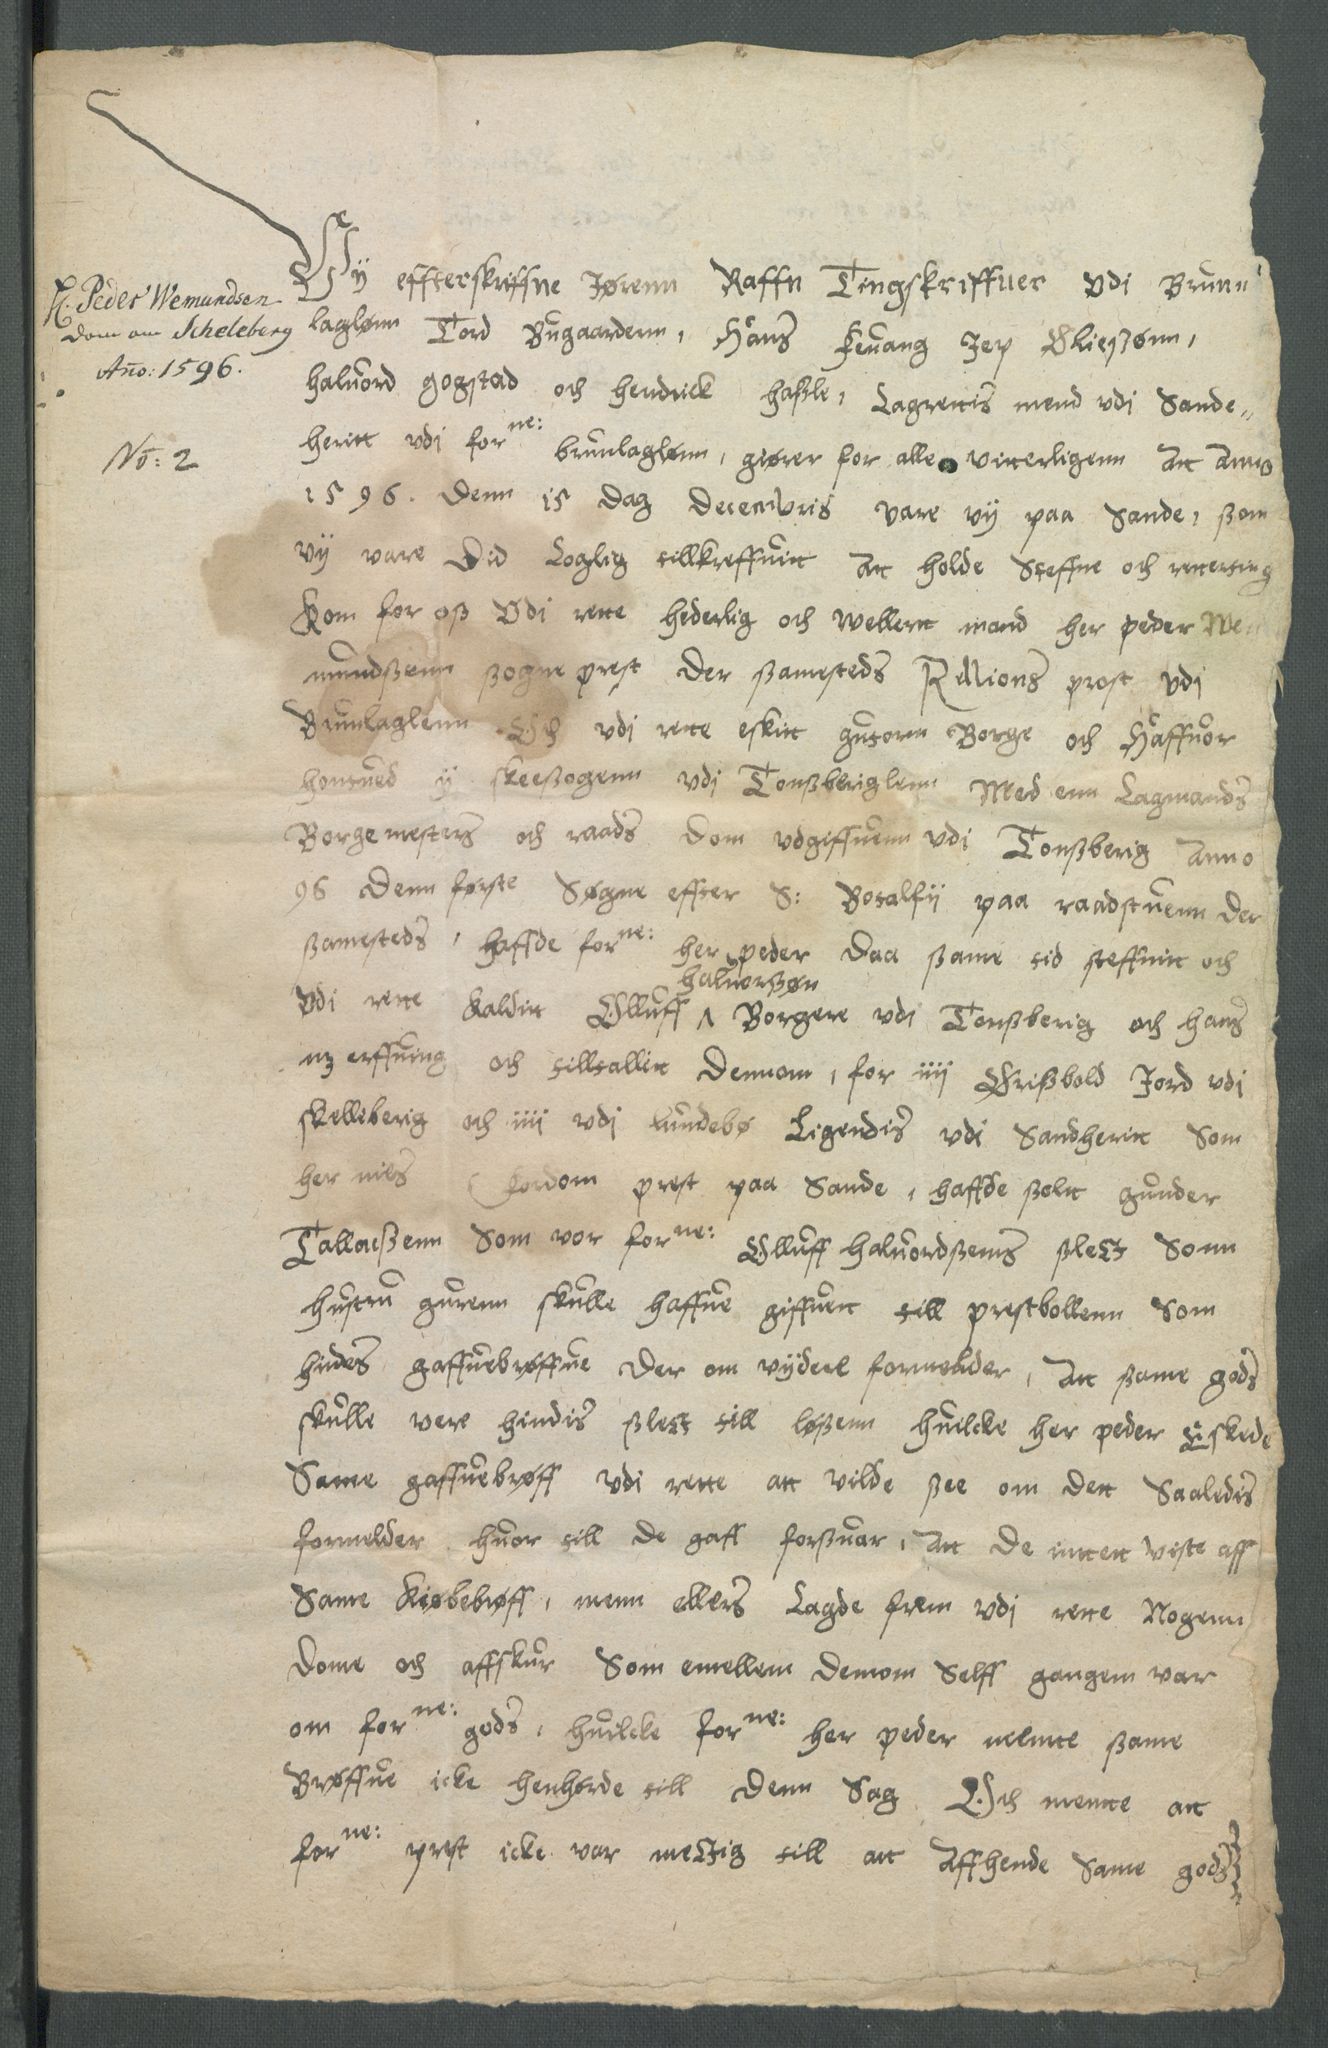 H. Peder Wemundsen
dom om Scheleberg
Año: 1596.
No: 2
Wÿ effterskriffne Jørenn Raffn Tingskriffuer vdi Brunn
laglønn Tord Bugaardenn, Hans Feuang Jep Oliessønn,
haluord gogstad och hendrick hassle, Lagrettis mend vdi Sande„
heritt vdi forne: brunlaglønn, giører for alle vitterligenn Att Anno
1596. Denn 15 Dag Decembris vare vÿ paa Sande, som
vÿ vare Did Loglig tillkreffuitt Att holde Steffne och retterting
Kom for oss Vdi rette hederlig och wellertt mand her peder We
mundssenn sogne prest Der samesteds prost vdi
Brunlaglenn Och vdi rette eskitt gutorm Borge och Haffuor
hontued ÿ skeesogenn vdi Tonssberiglenn Med enn Lagmands
Borgemesters och raads Dom vdgiffuenn vdi Tonssberig Anno
96 Denn første Søgne effter S: Botalfÿ paa raadstuenn Der
samesteds, haffde forne: her peder Daa same tid steffnitt och
Vdi rette kalditt Olluff haluorssøn Borgere vdi Tonssberig och hans
m3 erffuing och tilltallitt Dennom, for iiii Ørissbold Jord vdi
skelleberig och iiii vdi lundebø Ligendis vdi Sandheritt Som
her niels fordom prest paa Sande, haffde soltt gunder
Tallacssenn Som vor forne: Olluff haluordssenns slect Som
hustru gurenn skulle haffue giffuett till prestbollenn Som
hindes gaffuebrøffue Der om vÿdere formelder, Att same gods
skulle vere hindis slect till løsenn huilcke her peder Eskede
Same gaffuebrøff vdi rette att vilde see om dett Saaledis
formelder huor till de gaff forsuar, Att de inttett viste aff
Same Kiøbebrøff, menn ellers Lagde frem vdi rette Nogenn
Dome och affskur Som emellem Demom Selff gangenn var
om forne: gods, huilcke forne: her peder mentte same
Brøffue icke henhørde till Denn Sag Och mentte att
forne: prest icke var mectig till att Affhende Same gods